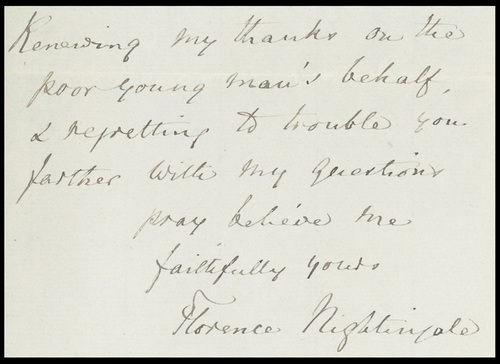 Renewing my thanks on the
poor young man's behalf,
& regretting to trouble you
farther with my questions
pray believe me
faithfully yours
Florence Nightingale